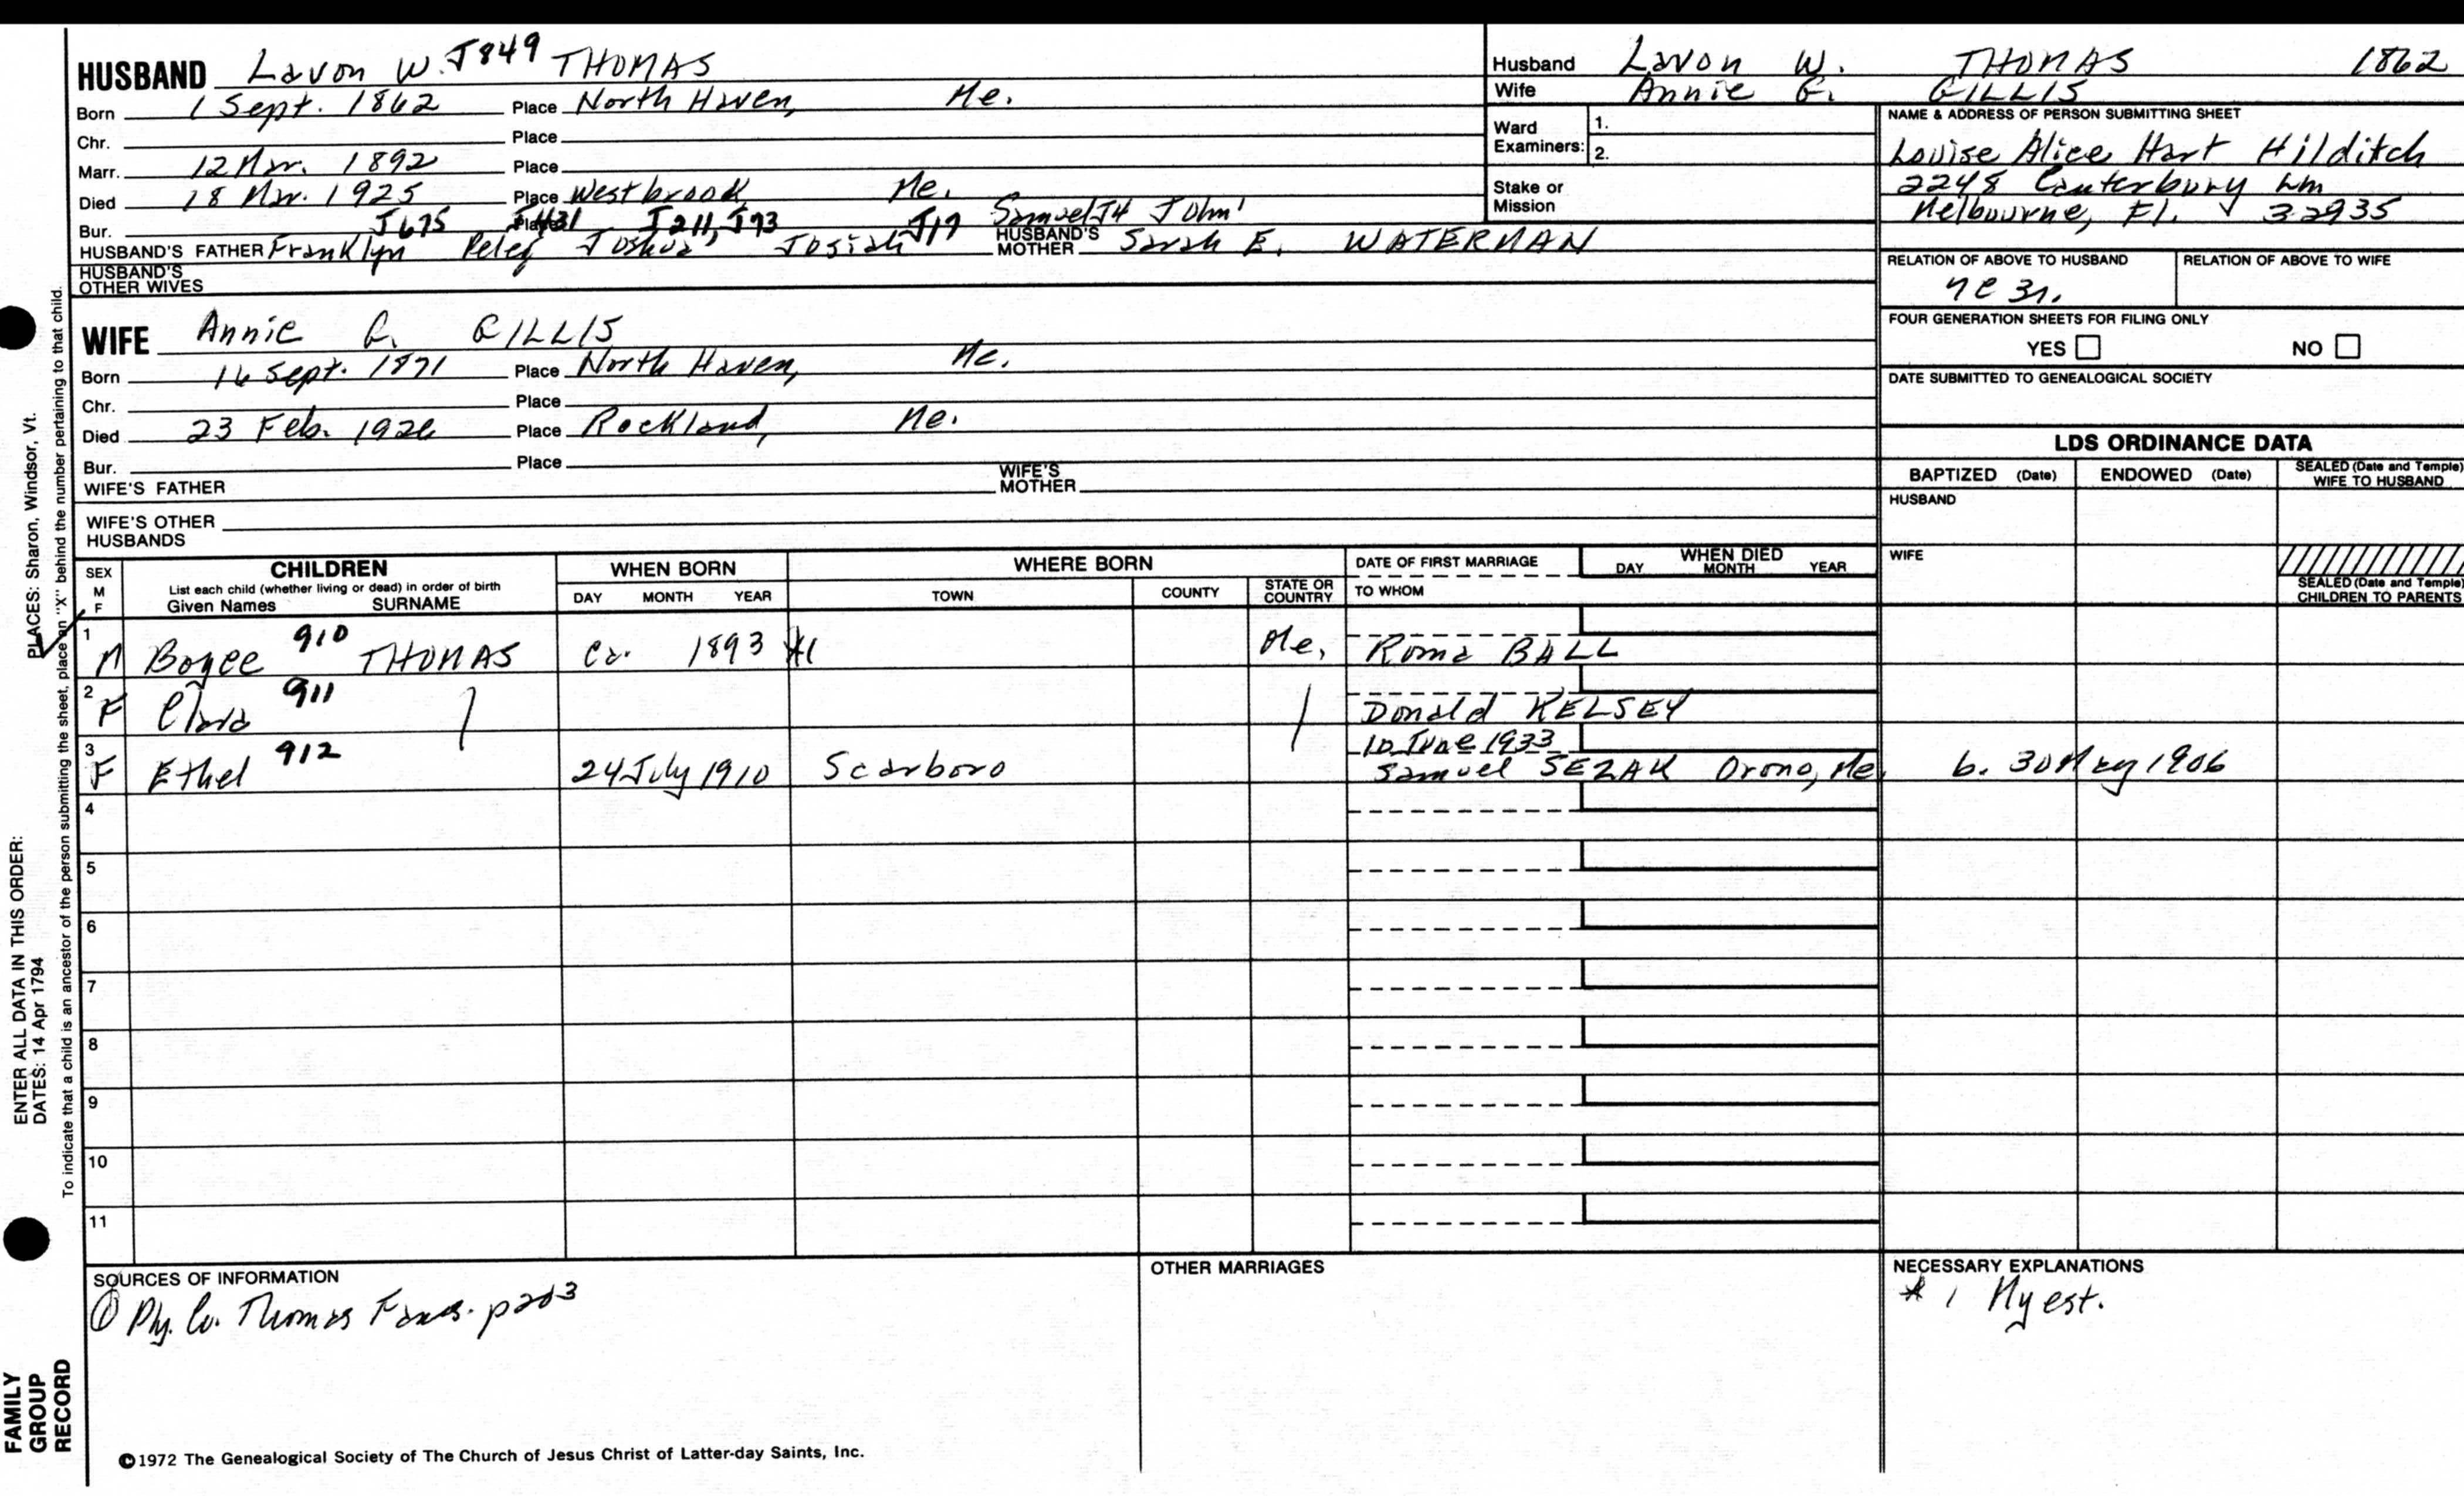 HUSBAND Lavon W. J849 THOMAS
Born 1 Sept. 1862 Place North Haven, Me.
Chr. Place
Marr. 12 Mar. 1892 Place
Died 18 Mar. 1925 Place Westbrook, Me.
Bur. Place
J675 J431 J211, J73 J17 Samuel J4 John'
HUSBAND'S FATHER Franklyn Peleg Joshua Josiah HUSBAND'S MOTHER Sarah E. WATERMAN
HUSBAND'S OTHER WIVES
WIFE Annie G. GILLIS
Born 16 Sept. 1871 Place North Haven, Me.
Chr. Place
Died 23 Feb. 1926 Place Rockland, Me.
Bur. Place
WIFE'S FATHER WIFE'S MOTHER
WIFE'S OTHER HUSBANDS
Husband Lavon W. THOMAS 1862
Wife Annie G. GILLIS
Ward Examiners: 1.
2.
Stake or Mission
NAME & ADDRESS OF PERSON SUBMITTING SHEET
Louise Alice Hart Hilditch
2248 Canterbury Ln
Melbourne, Fl. 32935
RELATION OF ABOVE TO HUSBAND RELATION OF ABOVE TO WIFE
FOUR GENERATION SHEETS FOR FILING ONLY
YES NO
DATE SUBMITTED TO GENEALOGICAL SOCIETY
LDS ORDINANCE DATA
BAPTIZED (Date) ENDOWED (Date) SEALED (Date and Temple) WIFE TO HUSBAND
HUSBAND
WIFE
SEALED (Date and Temple) CHILDREN TO PARENTS
SEX M F CHILDREN WHEN BORN WHERE BORN DATE OF FIRST MARRIAGE WHEN DIED
List each child (whether living or dead) in order of birth
Given Names SURNAME DAY MONTH YEAR TOWN COUNTY STATE OR COUNTRY TO WHOM DAY MONTH YEAR
1 M Boyce 910 THOMAS Ca. 1893 *1 Me. Roma BALL
2 F Clara 911 Donald KELSEY
10 June 1933
3 F Ethel 912 24 July 1910 Scarboro Samuel SEZAK Orono, Me. b. 30 May 1906
4
5
6
7
8
9
10
11
SOURCES OF INFORMATION
① Ply. Co. Thomas Fams. p203
OTHER MARRIAGES
NECESSARY EXPLANATIONS
* 1 My est.
©1972 The Genealogical Society of The Church of Jesus Christ of Latter-day Saints, Inc.
FAMILY GROUP RECORD
ENTER ALL DATA IN THIS ORDER:
DATES: 14 Apr 1794
PLACES: Sharon, Windsor, Vt.
To indicate that a child is an ancestor of the person submitting the sheet, place an "X" behind the number pertaining to that child.